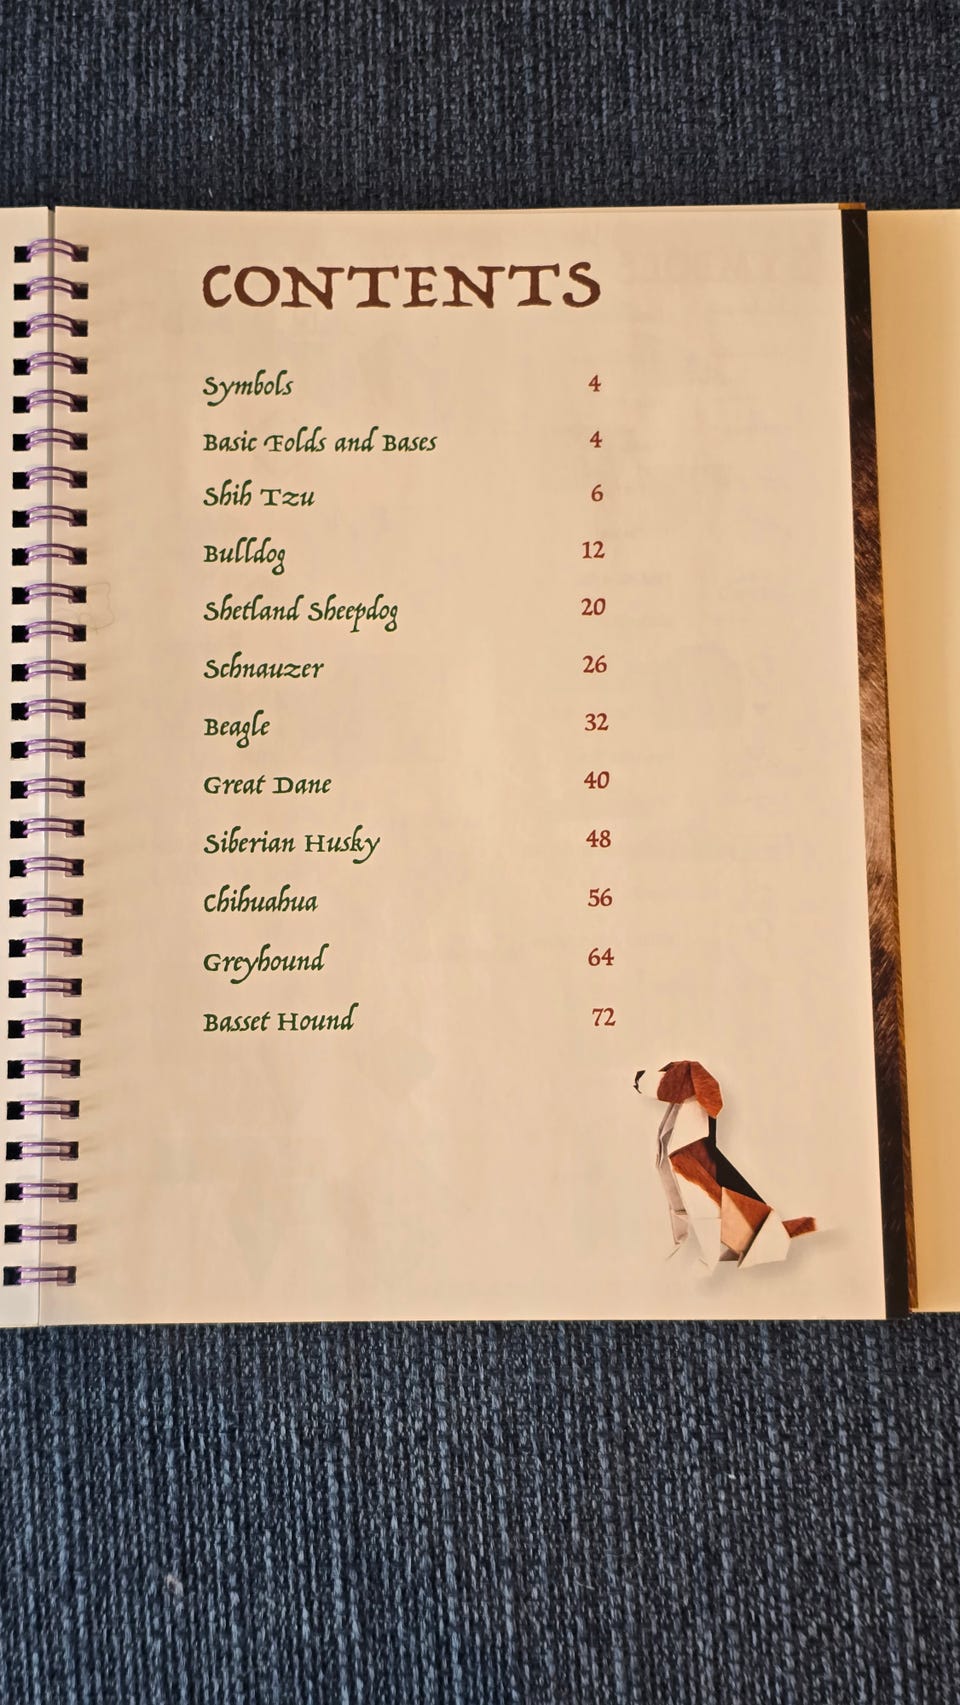 CONTENTS
Symbols 4
Basic Folds and Bases 4
Shih Tzu 6
Bulldog 12
Shetland Sheepdog 20
Schnauzer 26
Beagle 32
Great Dane 40
Siberian Husky 48
Chihuahua 56
Greyhound 64
Basset Hound 72